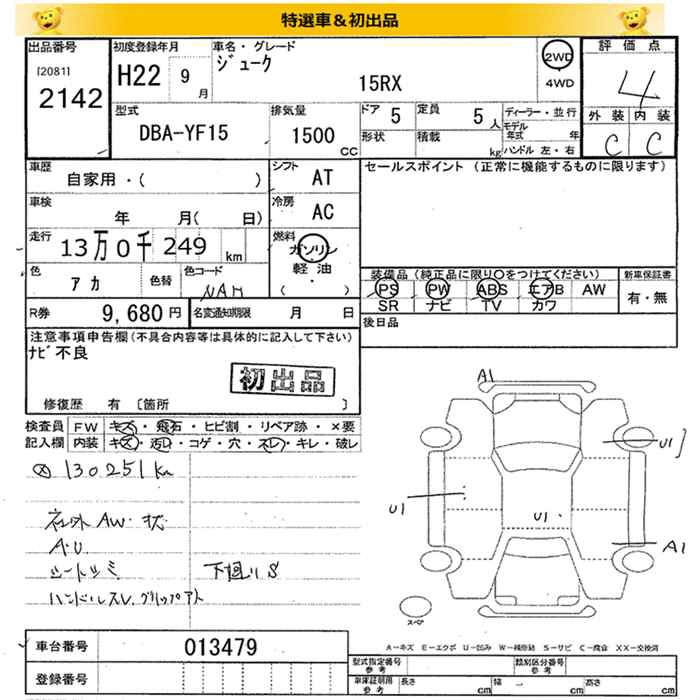 特選車&初出品
出品番号 初度登録年月 車名・グレード 評価点
[2081] H22 9 月 ジューク 2WD
2142 15RX 4WD 4
型式 排気量 ドア 定員 ディーラー・並行 外装 内装
DBA-YF15 1500 CC 5 5 人 モデル年式 年 C C
形状 積載 kg ハンドル 左・右
車歴 シフト セールスポイント (正常に機能するものに限ります)
自家用・( ) AT
車検 冷房
年 月( 日) AC
走行 燃料
13万0千249 km ガソリン
軽油
( )
色 色替 色コード 装備品(純正品に限り○をつけてください) 新車保証書
アカ NAH PS PW ABS エアB AW 有・無
SR ナビ TV カワ
R券 9,680円 名変通知期限 月 日 後日品
注意事項申告欄(不具合内容等は具体的に記入して下さい)
ナビ不良
初出品
修復歴 有 [箇所 ]
検査員 FW キズ・飛石・ヒビ割・リペア跡・×要
記入欄 内装 キズ・汚れ・コゲ・穴・スレ・キレ・破レ
A1
130251km
U1
U1
U1
社外AW・状
A・U
A1
シートシミ 下廻りS
ハンドルスレ、グリップアト
スペ
A-キズ E-エクボ U-凹み W-補修跡 S-サビ C-腐食 XX-交換済
車台番号 013479
型式指定番号 参考 類別区分番号 参考
登録番号 車庫証明用 参考 長さ cm 幅 cm 高さ cm